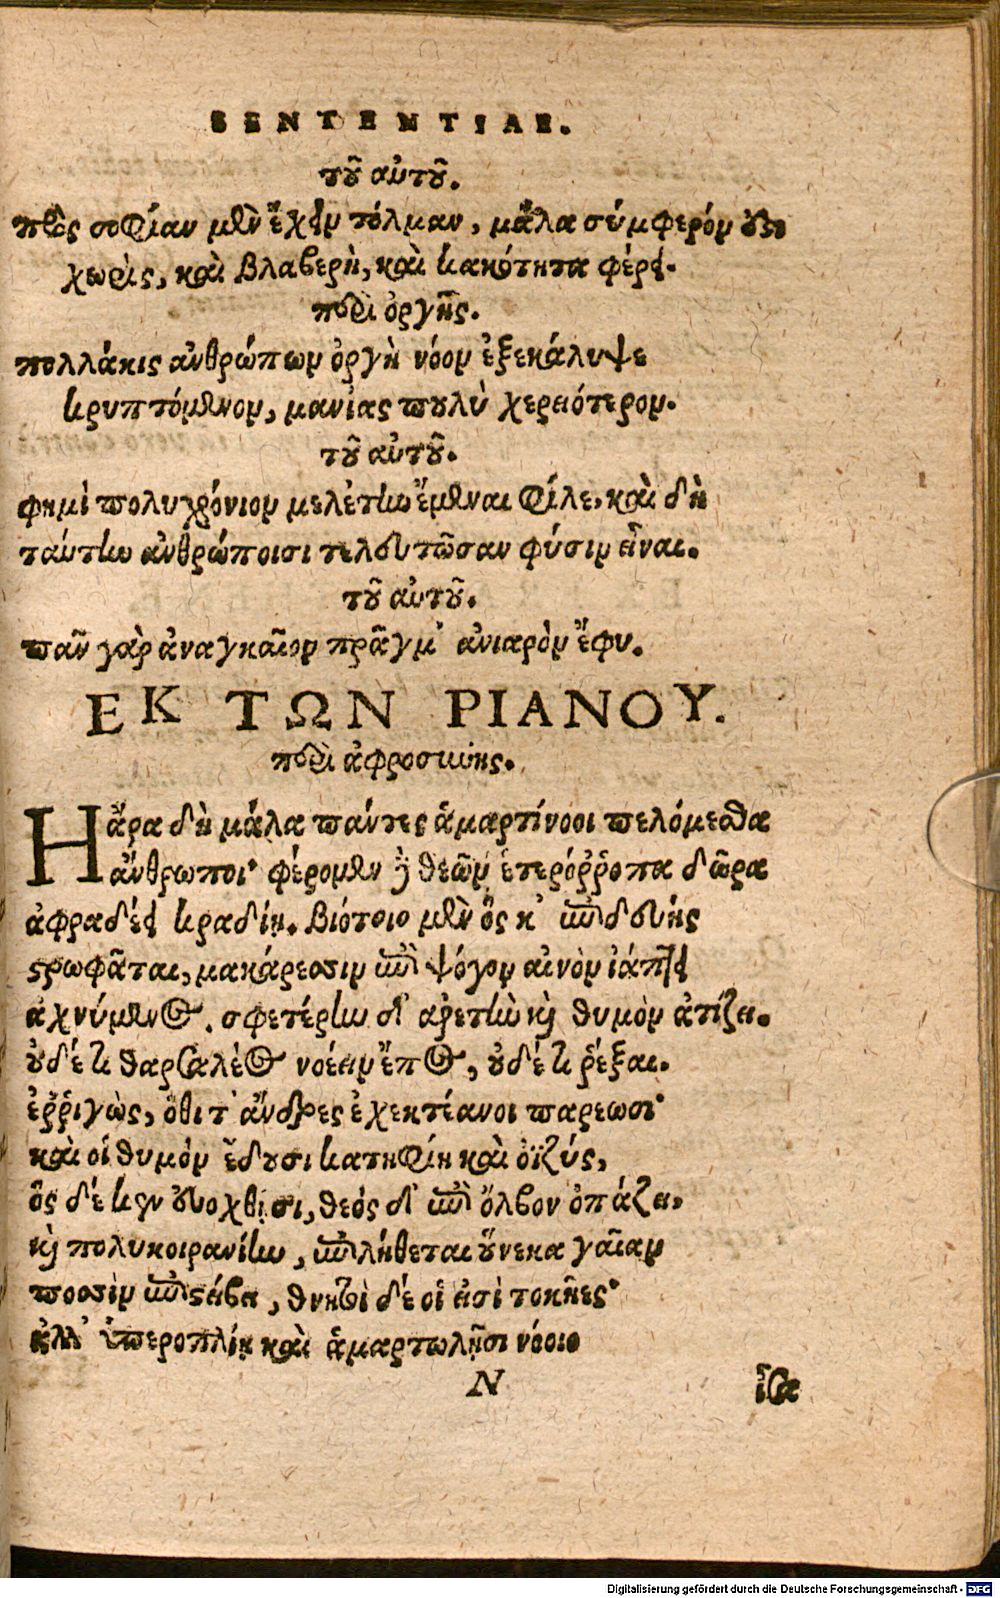 SENTENTIAE.
τοῦ αὐτοῦ.
πρὸς σοφίαν μὲν ἔχειν τόλμαν, μάλα σύμφερόν ἐστι
χωρὶς, καὶ βλαβερὴ, καὶ κακότητα φέρει.
περὶ ὀργῆς.
πολλάκις ἀνθρώπων ὀργὴ νόον ἐξεκάλυψε
κρυπτόμενον, μανίας πουλὺ χερειότερον.
τοῦ αὐτοῦ.
φημὶ πολυχρόνιον μελέτην ἔμεναι φίλε, καὶ δὴ
ταύτην ἀνθρώποισι τελευτῶσαν φύσιν εἶναι.
τοῦ αὐτοῦ.
πᾶν γὰρ ἀναγκαῖον πρᾶγμ' ἀνιαρὸν ἔφυ.
ΕΚ ΤΩΝ ΡΙΑΝΟΥ.
περὶ ἀφροσύνης.
Η ἄρα δὴ μάλα πάντες ἁμαρτίνοοι πελόμεσθα
ἄνθρωποι· φέρομεν δὲ θεῶν ἑτερόῤῥοπα δῶρα
ἀφραδέει κραδίῃ. βιότοιο μὲν ὅς κ' ἐπιδευὴς
στρωφᾶται, μακάρεσσιν ἐπὶ ψόγον αἰνὸν ἰάπτει
ἀχνύμενος. σφετέρην δ' ἀρετὴν καὶ θυμὸν ἀτίζει.
οὐδέ τι θαρσαλέος νοέειν ἔπος, οὐδέ τι ῥέξαι.
ἐῤῥιγὼς, ὅθι τ' ἄνδρες ἐχεκτέανοι παρέωσι·
καὶ οἱ θυμὸν ἔδουσι κατηφίη καὶ ὀϊζύς,
ὃς δέ κεν εὐοχθῇσι, θεὸς δ' ἐπὶ ὄλβον ὀπάζει,
καὶ πολυκοιρανίην, ἐπιλήθεται οὕνεκα γαῖαν
ποσσὶν ἐπιστείβει, θνητοὶ δέ οἱ εἰσὶ τοκῆες·
ἀλλ' ὑπεροπλίῃ καὶ ἁμαρτωλῇσι νόοιο
N ἶσα
Digitalisierung gefördert durch die Deutsche Forschungsgemeinschaft - DFG